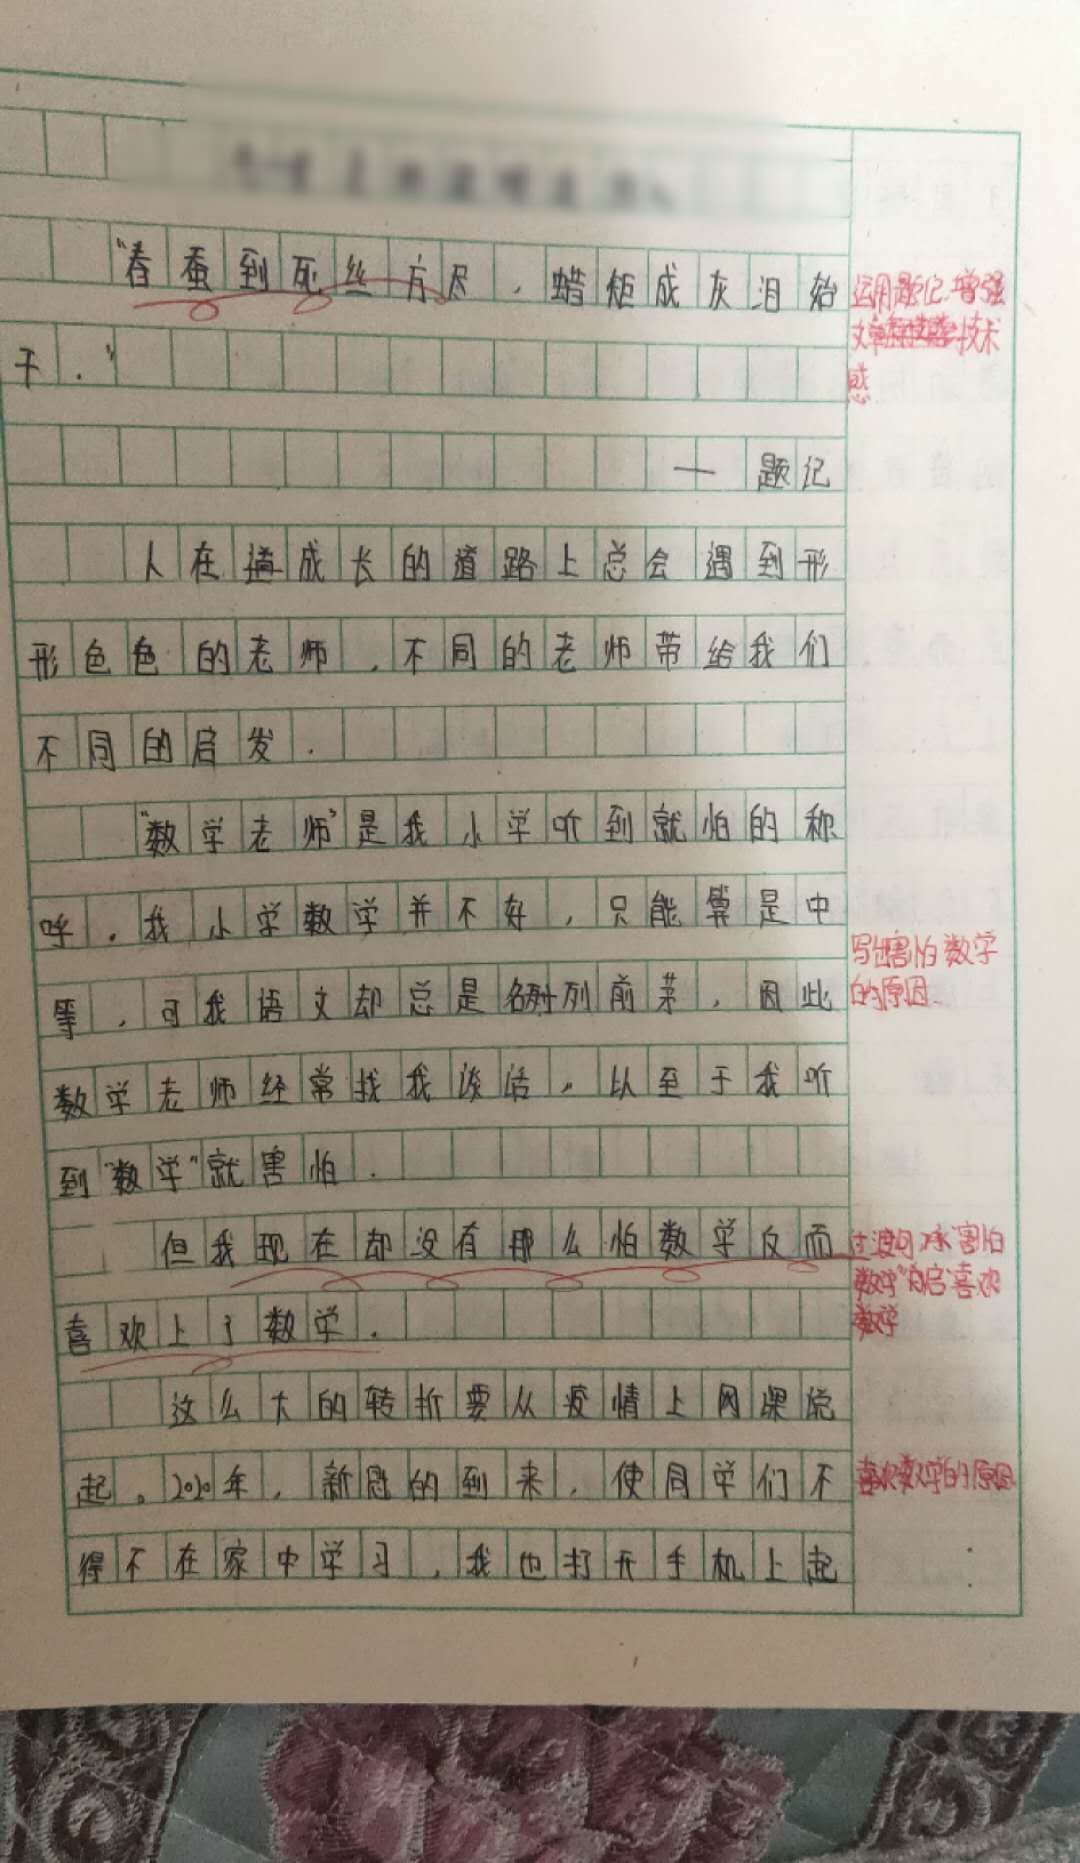 “春蚕到死丝方尽，蜡炬成灰泪始
干.”
运用题记,增强
文章技术
感
—题记
人在成长的道路上总会遇到形
形色色的老师，不同的老师带给我们
不同的启发.
“数学老师”是我小学听到就怕的称
呼.我小学数学并不好，只能算是中
等，可我语文却总是名列前茅，因此
写出害怕数学
的原因.
数学老师经常找我谈话。以至于我听
到“数学”就害怕.
但我现在却没有那么怕数学反而
喜欢上了数学.
过渡句,承“害怕
数学”启“喜欢
数学
这么大的转折要从疫情上网课说
起。2020年，新冠的到来，使同学们不
喜欢数学的原因
得不在家中学习，我也打开手机上起